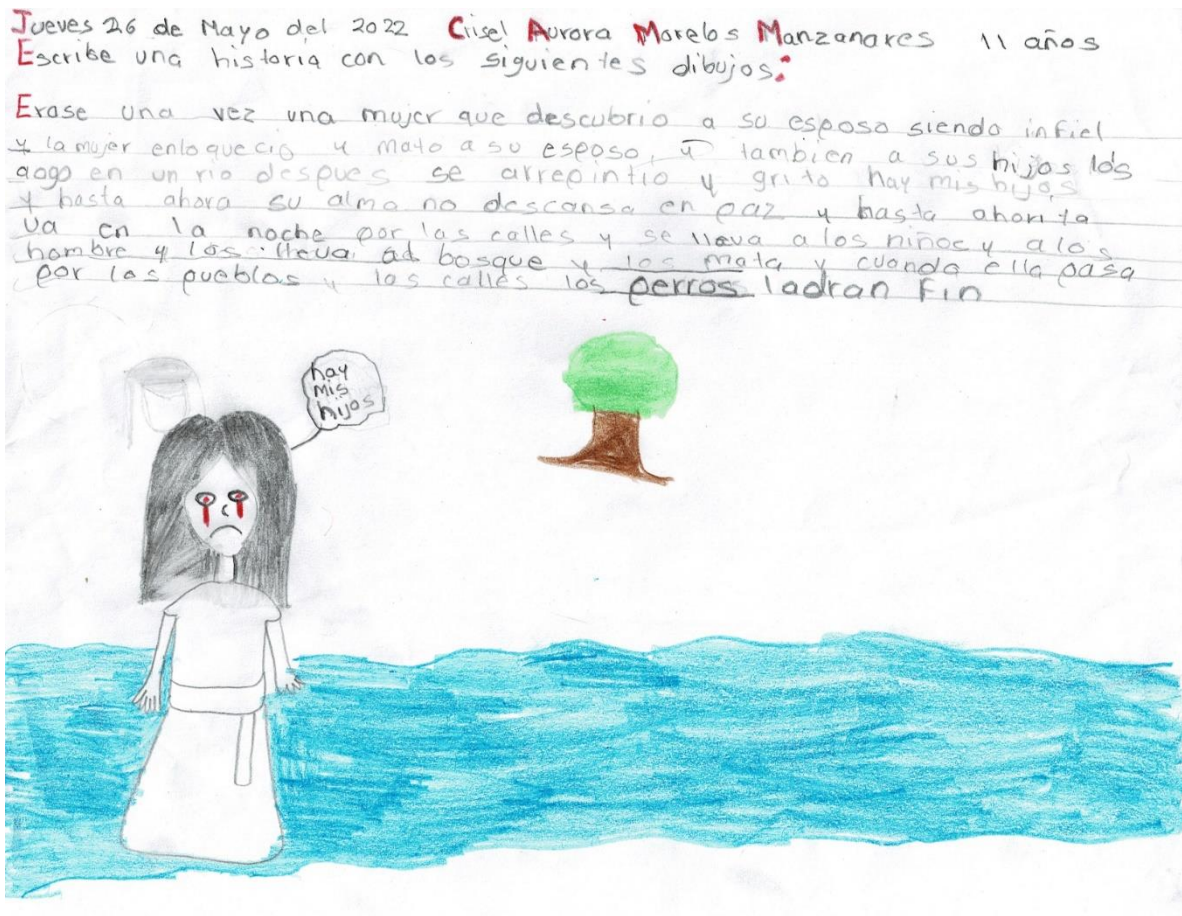 Jueves 26 de Mayo del 2022 Crisel Aurora Morelos Manzanares 11 años
Escribe una historia con los siguientes dibujos:
Erase una vez una mujer que descubrio a su esposo siendo infiel
y la mujer enloquecio y mato a su esposo, y tambien a sus hijos los
aogo en un rio despues se arrepintio y grito hay mis hijos
y hasta ahora su alma no descansa en paz y hasta ahorita
va en la noche por las calles y se lleva a los niños y a los
hombre y los lleva al bosque y los mata y cuando ella pasa
por los pueblos y las calles los perros ladran Fin
hay
mis
hijos